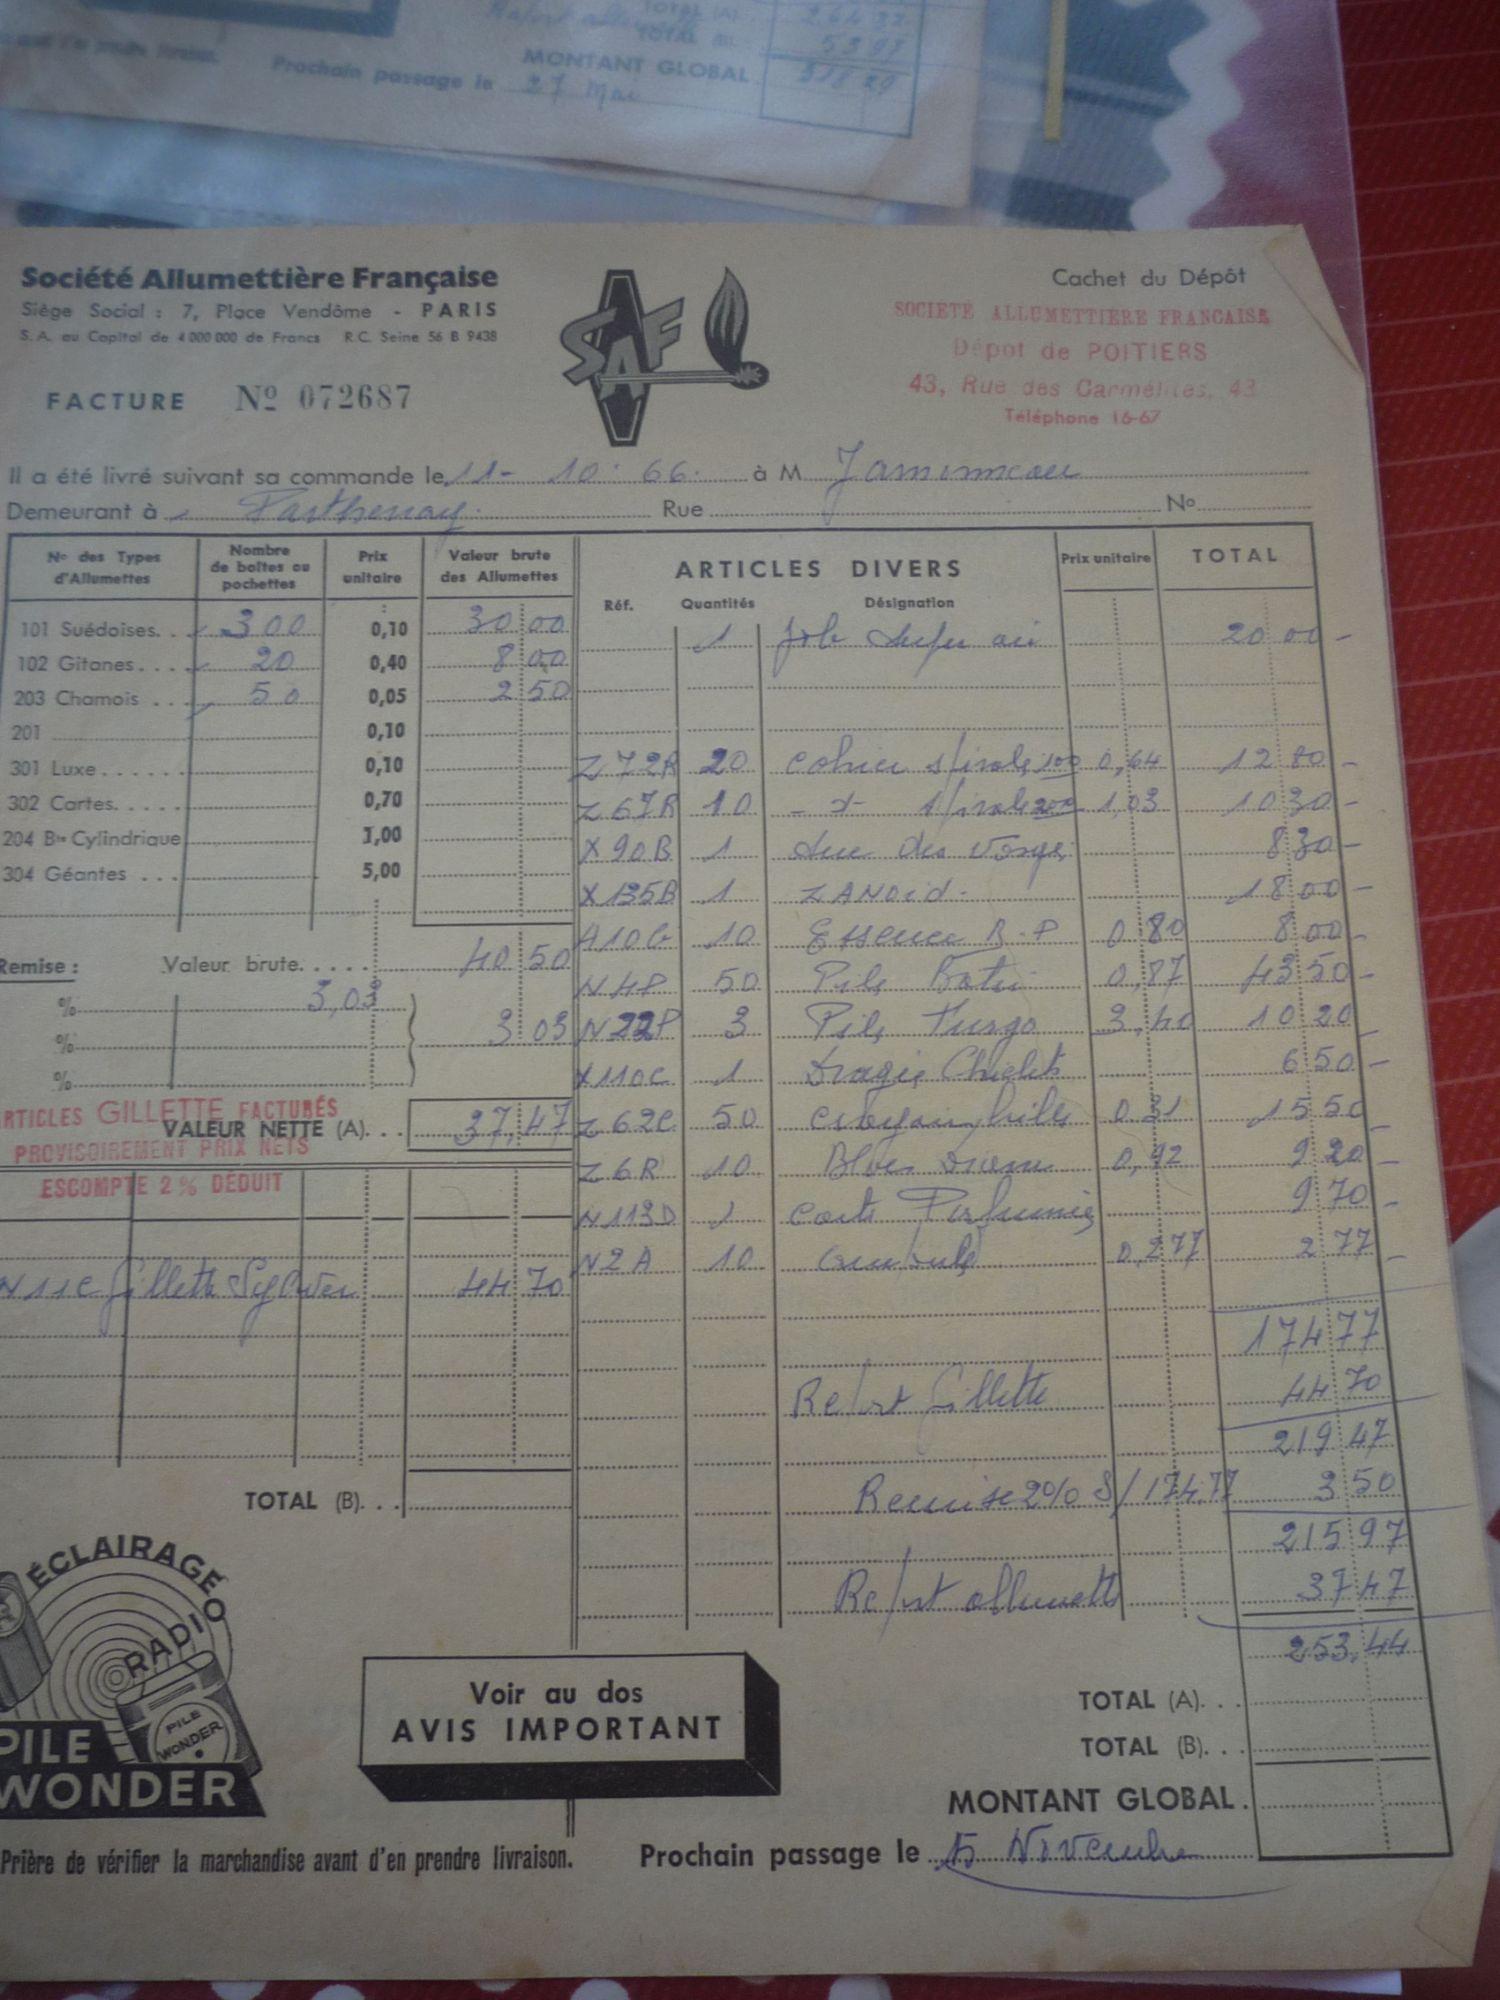 TOTAL (A)
TOTAL (B)
53 97
MONTANT GLOBAL
318 29
Prochain passage le 27 Mai
Société Allumettière Française
Siège Social : 7, Place Vendôme - PARIS
S. A. au Capital de 4 000 000 de Francs R.C. Seine 56 B 9438
FACTURE Nº 072687
SAF
Cachet du Dépôt
SOCIÉTÉ ALLUMETTIÈRE FRANCAISE
Dépot de POITIERS
43, Rue des Carmélites, 43
Téléphone 16-67
Il a été livré suivant sa commande le 11 - 10 . 66 . à M
Demeurant à Parthenay. Rue Nº
Nº des Types d'Allumettes
Nombre de boîtes ou pochettes
Prix unitaire
Valeur brute des Allumettes
101 Suédoises. . 300 0,10 30 00
102 Gitanes. . . . 20 0,40 8 00
203 Chamois . . . 50 0,05 2 50
201 0,10
301 Luxe. . . . . . 0,10
302 Cartes. . . . . 0,70
204 Bte Cylindrique 1,00
304 Géantes . . . 5,00
Remise : Valeur brute. . . . . 40 50
% 3,03
% 3 03
%
ARTICLES GILLETTE FACTURÉS
VALEUR NETTE (A). . . 37,47
PROVISOIREMENT PRIX NETS
ESCOMPTE 2 % DÉDUIT
N 11C Gillette 44 70
TOTAL (B). . .
ARTICLES DIVERS Prix unitaire TOTAL
Réf. Quantités Désignation
1 Job 20 00 -
Z 72R 20 Cahier spirale 100 0,64 12 80 -
Z 67R 10 - x - spirale 200 1,03 10 30 -
X 90B 1 des Vosges 8 30 -
X 135B 1 ZANoid - 18 00 -
A10G 10 Essence R. P 0 80 8 00 -
N 4P 50 Pile 0,87 43 50 -
N 22P 3 Pile 3,40 10 20 -
X110C 1 Dragée Chiclets 6 50 -
Z 62C 50 Crayon bille 0 31 15 50 -
Z 6R 10 0,92 9 20 -
N113D 1 Carte 9 70 -
N2A 10 0,277 2 77 -
174 77
Report Gillette 44 70
219 47
Remise 2% S/ 174,77 3 50
215 97
Report allumette 37 47
253,44
TOTAL (A). . .
TOTAL (B). . .
MONTANT GLOBAL .
ÉCLAIRAGE
RADIO
PILE WONDER
PILE
WONDER
Voir au dos
AVIS IMPORTANT
Prière de vérifier la marchandise avant d'en prendre livraison.
Prochain passage le 15 Novembre